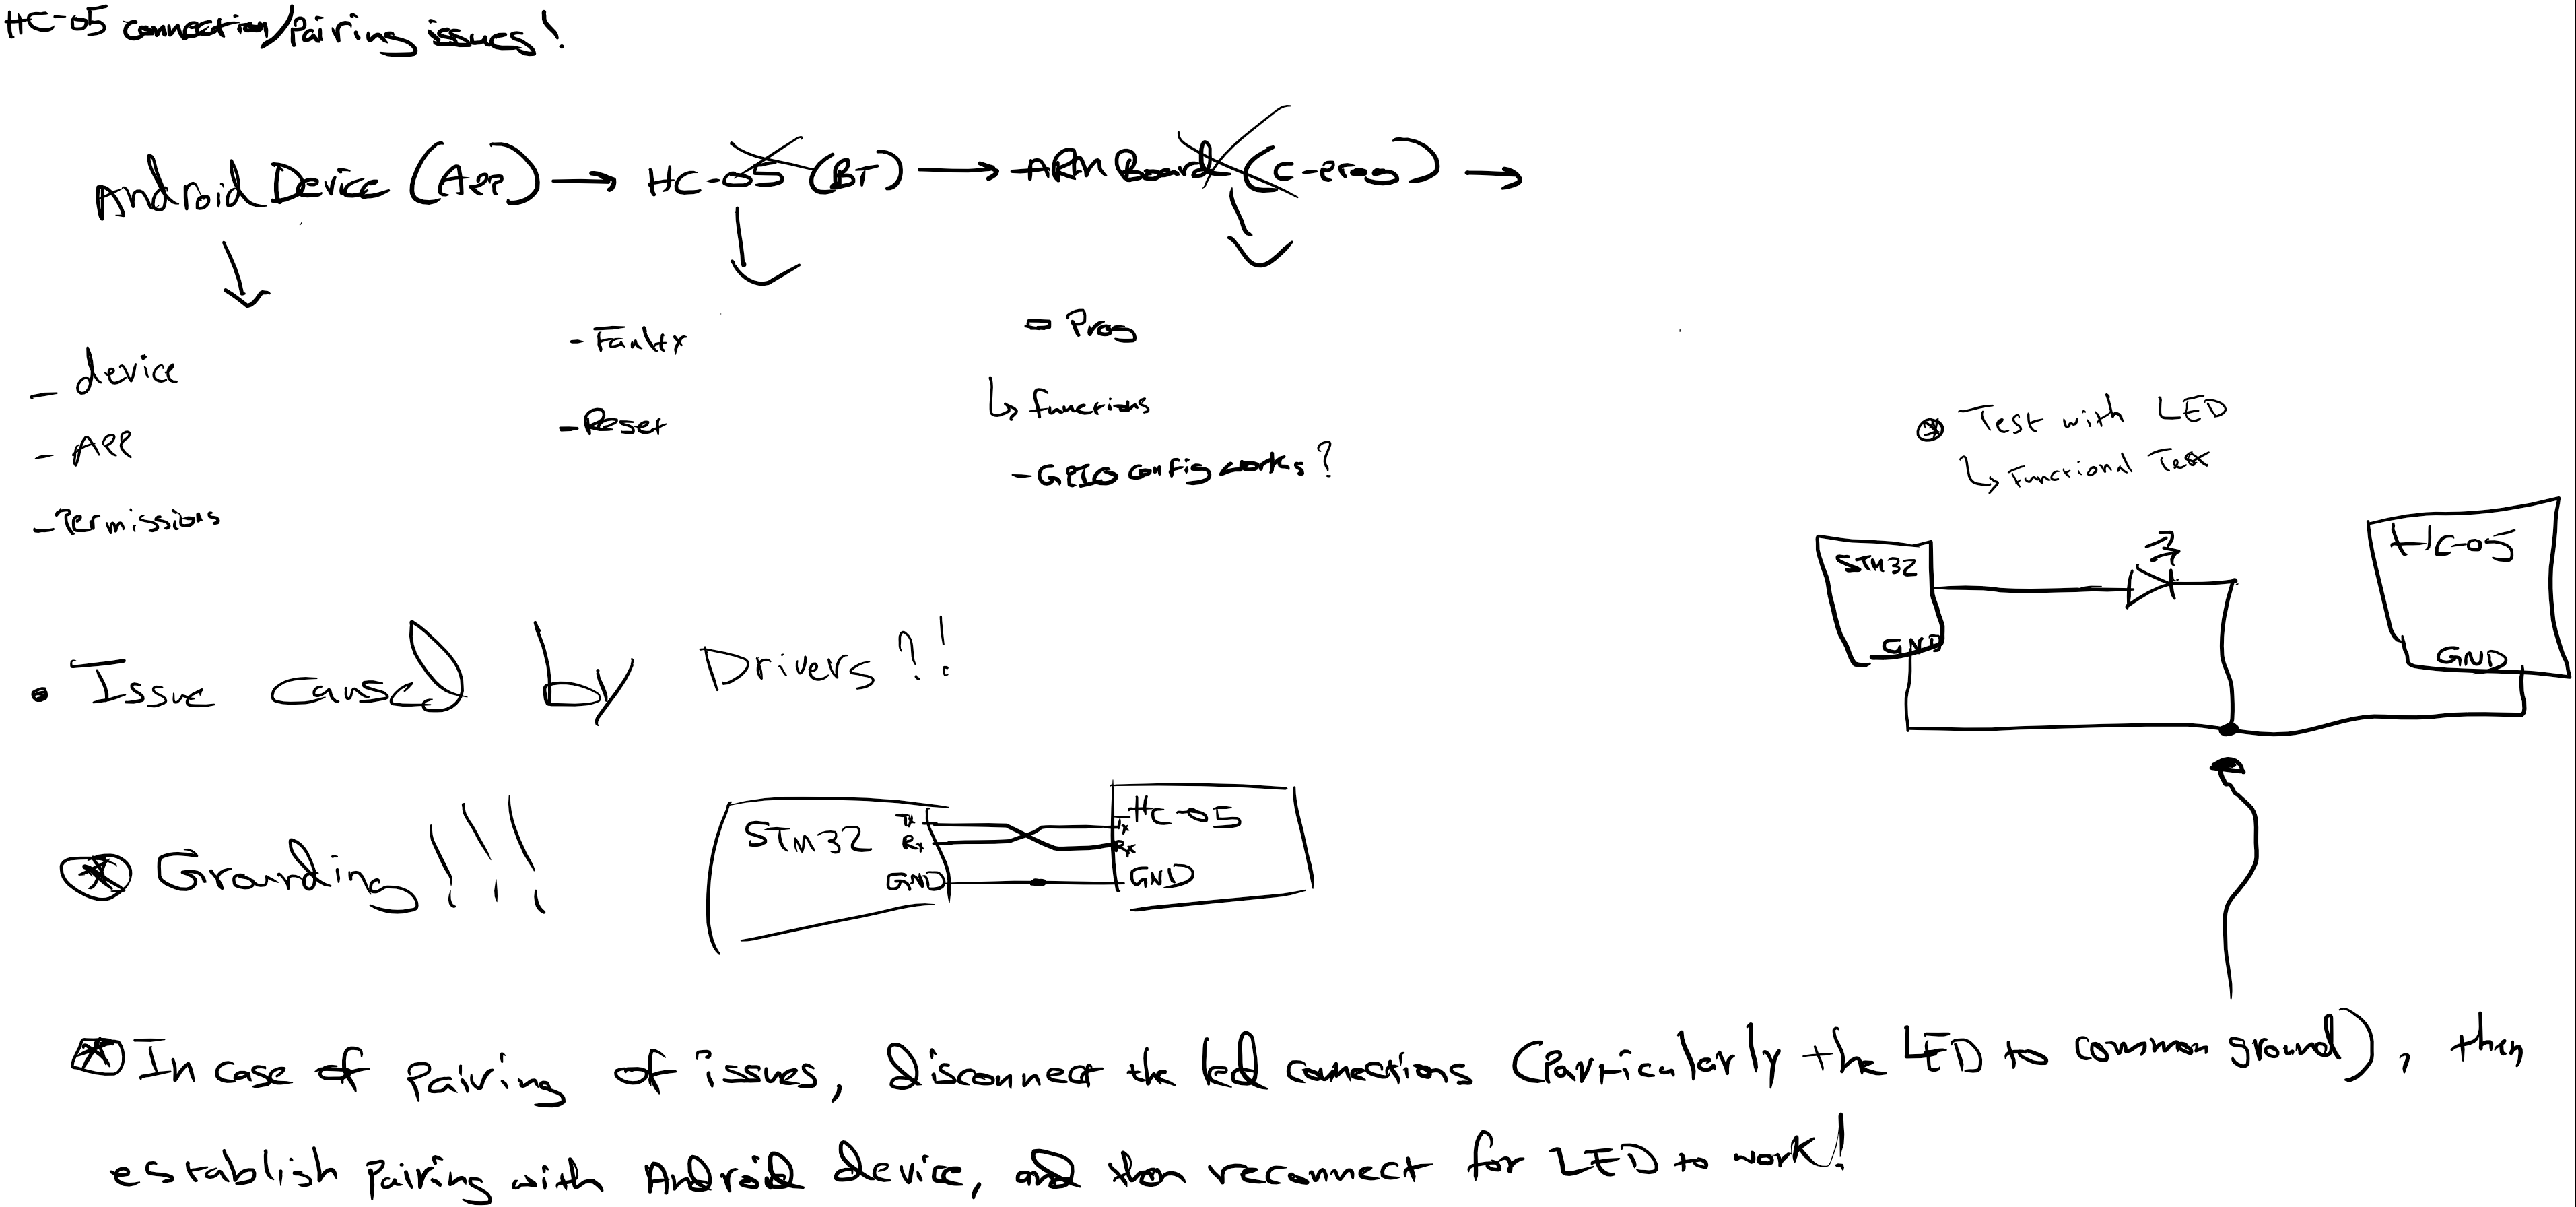 HC-05 connection/Pairing issues!
Android Device (App) → HC-05 (BT) → ARM Board (C-prog) →
- device
- App
- Permissions
- Faulty
- Reset
- Prog
↳ functions
- GPIO config works?
⊛ Test with LED
↳ Functional Test
STM32
GND
HC-05
GND
• Issue caused by Drivers?!
⊛ Grounding!!!
STM32
Tx
Rx
GND
HC-05
Tx
Rx
GND
⊛ In case of pairing of issues, disconnect the led connections (Particularly the LED to common ground), then
establish pairing with Android device, and then reconnect for LED to work!